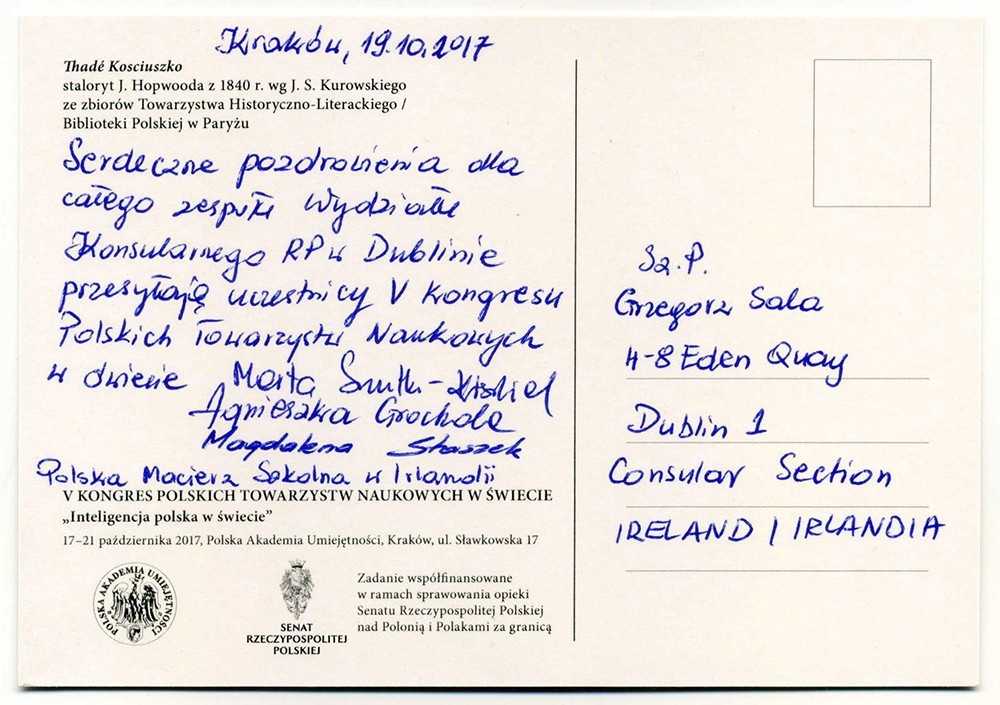 Kraków, 19.10.2017
Thadé Kosciuszko
staloryt J. Hopwooda z 1840 r. wg J. S. Kurowskiego
ze zbiorów Towarzystwa Historyczno-Literackiego /
Biblioteki Polskiej w Paryżu
Serdeczne pozdrowienia dla
całego zespołu Wydziału
Konsularnego RP w Dublinie
przesyłają uczestnicy V Kongresu
Polskich Towarzystw Naukowych
w świecie Marta
Agnieszka Grochola
Magdalena Staszek
Polska Macierz Szkolna w Irlandii
V KONGRES POLSKICH TOWARZYSTW NAUKOWYCH W ŚWIECIE
„Inteligencja polska w świecie”
17–21 października 2017, Polska Akademia Umiejętności, Kraków, ul. Sławkowska 17
POLSKA AKADEMIA UMIEJĘTNOŚCI
SENAT
RZECZYPOSPOLITEJ
POLSKIEJ
Zadanie współfinansowane
w ramach sprawowania opieki
Senatu Rzeczypospolitej Polskiej
nad Polonią i Polakami za granicą
Sz. P.
Grzegorz Sala
4-8 Eden Quay
Dublin 1
Consular Section
IRELAND / IRLANDIA